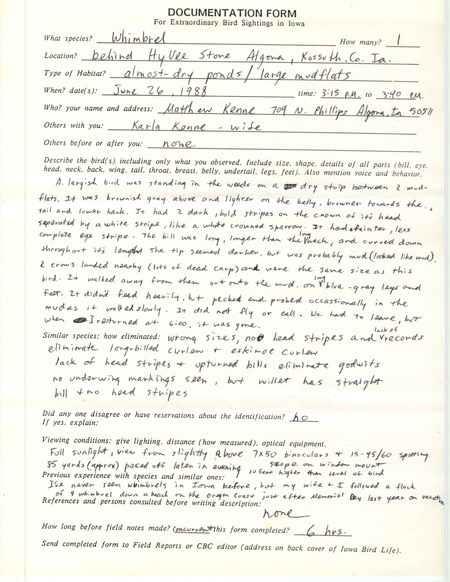 DOCUMENTATION FORM
For Extraordinary Bird Sightings in Iowa
What species? Whimbrel How many? 1
Location? behind HyVee Store Algona, Kossuth Co. Ia.
Type of Habitat? almost-dry ponds/large mudflats
When? date(s): June 26, 1988 time: 3:15 P.M. to 3:40 P.M.
Who? your name and address: Matthew Kenne 709 N. Phillips Algona, Ia. 50511
Others with you: Karla Kenne - wife
Others before or after you: none
Describe the bird(s) including only what you observed. Include size, shape, details of all parts (bill, eye,
head, neck, back, wing, tail, throat, breast, belly, undertail, legs, feet). Also mention voice and behavior.
A largish bird was standing in the weeds on a dry strip between 2 mud-
flats. It was brownish gray above and lighter on the belly, browner towards the
tail and lower back. It had 2 dark, bold stripes on the crown of its head
seperated by a white stripe, like a white crowned sparrow. It had a fainter, less
complete eye stripe. The bill was long, longer than the neck, and curved down
throughout it's length. The tip seemed darker, but was probably mud (looked like mud).
2 crows landed nearby (lots of dead carp) and were the same size as this
bird. It walked away from them out onto the mud, on long blue-gray legs and
feet. It didn't feed heavily, but pecked and probed occassionally in the
mud as it walked slowly. It did not fly or call. We had to leave, but
when I returned at 6:00, it was gone.
Similar species; how eliminated: wrong sizes, no head stripes and lack of records
eliminate long-billed curlew + eskimoe curlew
lack of head stripes + upturned bills eliminate godwits
no underwing markings seen, but willet has straight
bill + no head stripes
Did any one disagree or have reservations about the identification? no
If yes, explain:
Viewing conditions: give lighting, distance (how measured), optical equipment.
Full sunlight, view from slightly above 7x50 binoculars + 15-45/60 spotting
85 yards (approx) paced off later in evening scope on window mount
10 feet higher than level of bird
Previous experience with species and similar ones:
I've never seen whimbrels in Iowa before, but my wife + I followed a flock
of 9 whimbrel down a beach on the oregon coast just after memorial Day last year on vacation
References and persons consulted before writing description:
none
How long before field notes made? concurrent this form completed? 6 hrs.
Send completed form to Field Reports or CBC editor (address on back cover of Iowa Bird Life).